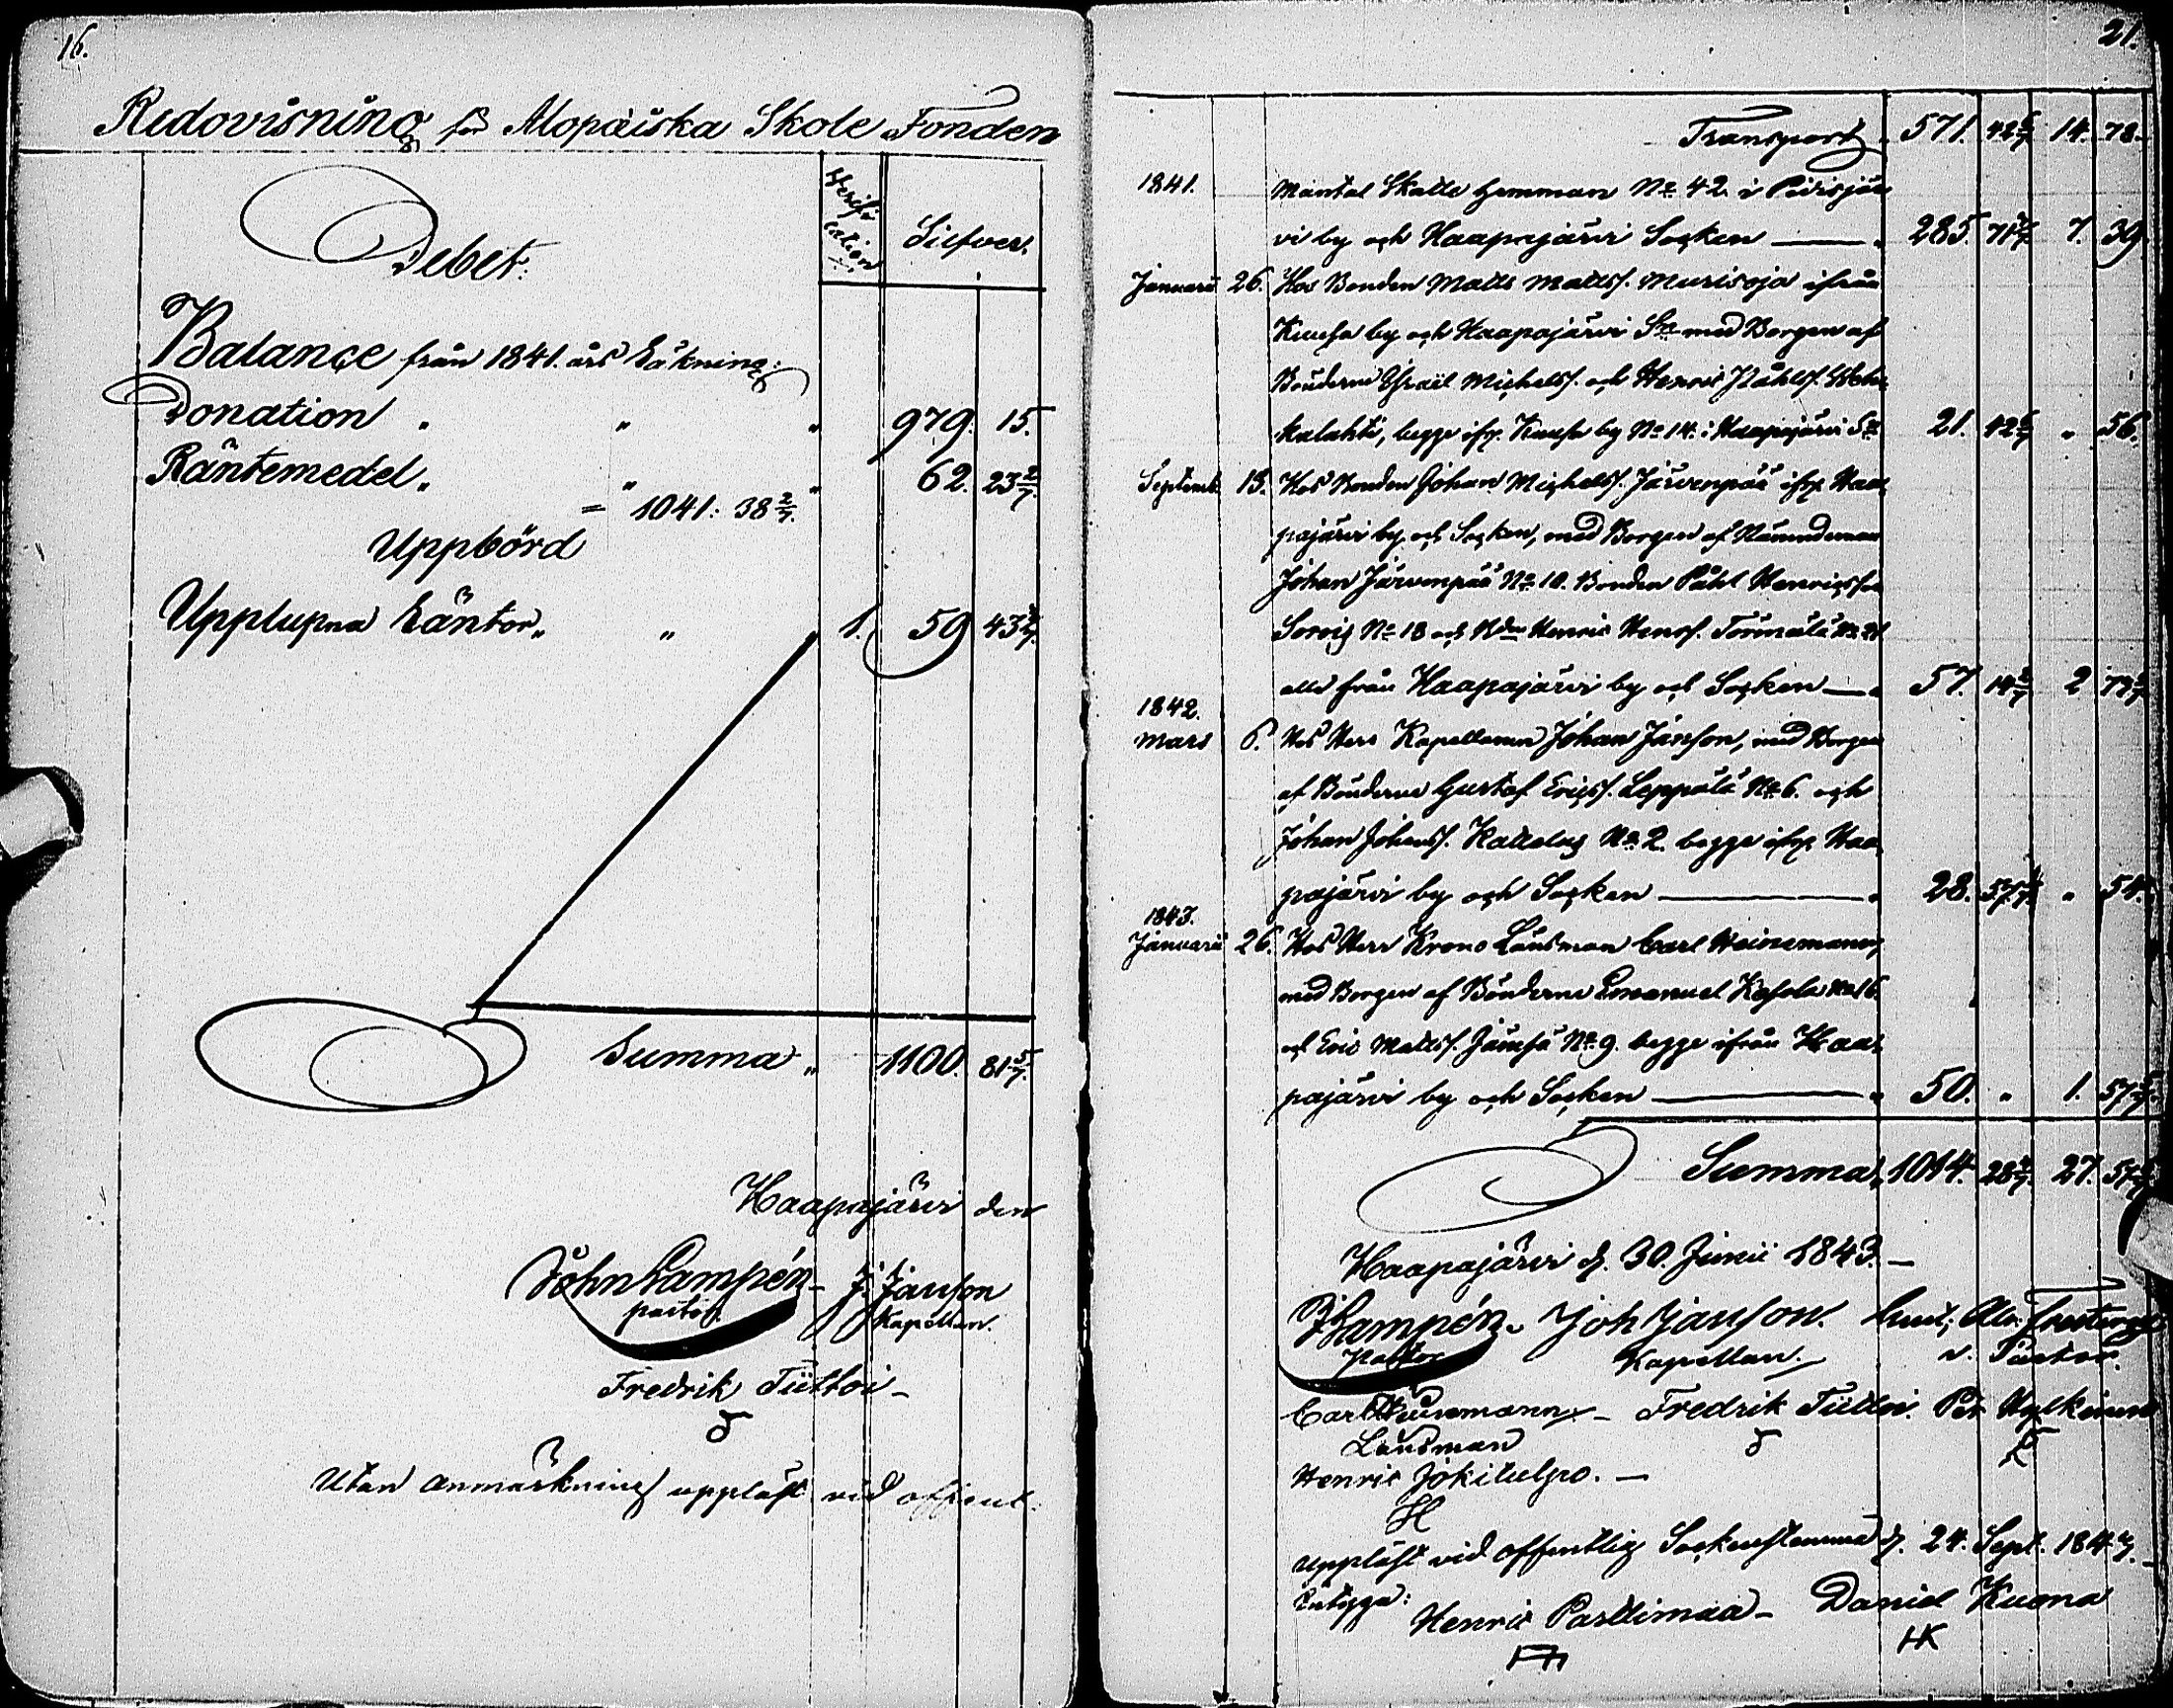 16.
Redovisning för Alopæiska Skole Fonden
Debet.
Verifi
cation
Silfver.
Balance från 1841. års Räkning:
Donation " " " 979. 15.
Räntemedel " " " 62. 23 2/7.
= 1041: 38 2/7.
Uppbörd
Upplupna Räntor " " " 1. 59 43 3/7.
Summa " 1100. 81 5/7.
Haapajärvi den
John Lampén - J. Janson
pastor. Kapellan.
Fredrik Tiittoi -
Utan anmärkning uppläst vid offent
21.
Transport " 571. 42 6/7 14. 78.
1841. Mantal Skatte Hemman No 42. i Pidisjär
vi by och Haapajärvi Socken — " 285. 71 3/7 7. 39.
Januarii 26. Hos Bonden Matts Mattss. Murisoja ifrån
by och Haapajärvi Sn med Borgen af
Bönderne Michelss. och Henric
kalahti, begge ifr. by No 14. i Haapajärvi Sn 21. 42 6/7 " 56.
Septemb. 13. Hos Bonden Johan Michelss. Järvenpää ifr. Haa
pajärvi by och Socken, med Borgen af Nämndeman
Johan Järvenpää No 10. Bonden Påhl Henricsson
No 18 och Henric Henrs. Törmälä No 21
alla från Haapajärvi by och Socken — " 57. 14 2/7 2
1842.
Mars 6. Hos Herr Kapellanen Johan Janson, med Borgen
af Bönderne Gustaf Ericss. Leppälä No 6. och
Johan Johanss. Kattelus No 2. begge ifr. Haa
pajärvi by och Socken — " 28. 57 1/7 " 54.
1843.
Januarii 26. Hos Herr Krono Länsman Carl Heinemann,
med Borgen af Bönderne Emanuel No 16.
och Eric Mattss. Jämsä No 9. begge ifrån Haa
pajärvi by och Socken — " 50. " 1. 57
Summa, 1014. 28 4/7. 27. 57
Haapajärvi d. 30. Junii 1843. —
J Lampén. Joh Janson.
Pastor Kapellan. v. Pastor.
Carl Heinemann - Fredrik Tiittoi. Pet.
Länsman
Henric Jokitulppo. —
H
uppläst vid offentlig Sockenstämma d. 24. Sept. 1843. —
Intyga:
Henric Parttimaa - Daniel Kuona
HK